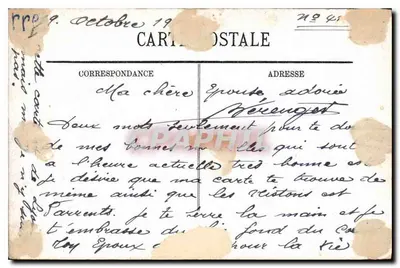 9. Octobre 19
No 4
CARTE POSTALE
CORRESPONDANCE
ADRESSE
Ma chère Epouse adorée
Bérenger
Deux mots seulement pour te do
de mes bonnes no lles qui sont
à l'heure actuelle très bonne e
je désire que ma carte te trouve de
même ainsi que les fistons et
Parrents. je te serre la main et je
t'embrasse du fond du co
Ton Epoux pour la vie